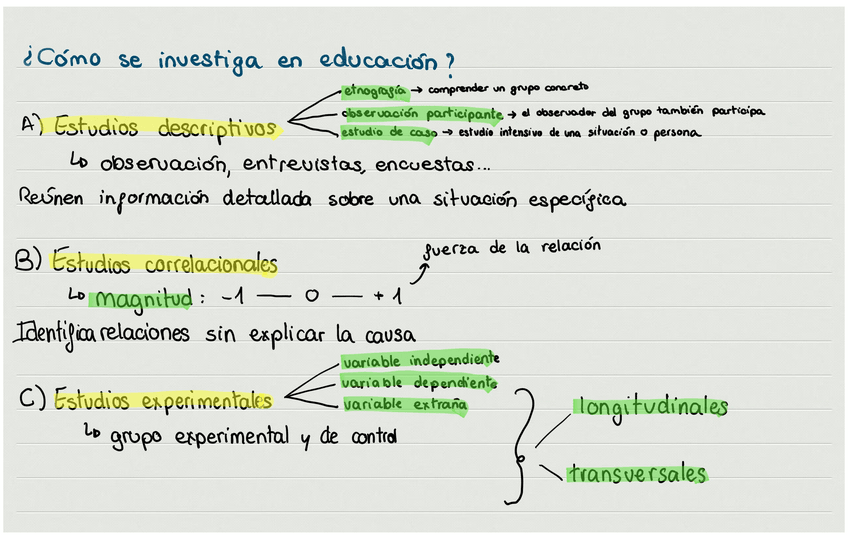 ¿Cómo se investiga en educación?
etnografía → comprender un grupo concreto
A) Estudios descriptivos
observación participante → el observador del grupo también participa
estudio de caso → estudio intensivo de una situación o persona
↳ observación, entrevistas, encuestas...
Reúnen información detallada sobre una situación específica
B) Estudios correlacionales
fuerza de la relación
↳ magnitud: -1 — 0 — +1
Identifica relaciones sin explicar la causa
C) Estudios experimentales
variable independiente
variable dependiente
variable extraña
↳ grupo experimental y de control
longitudinales
transversales